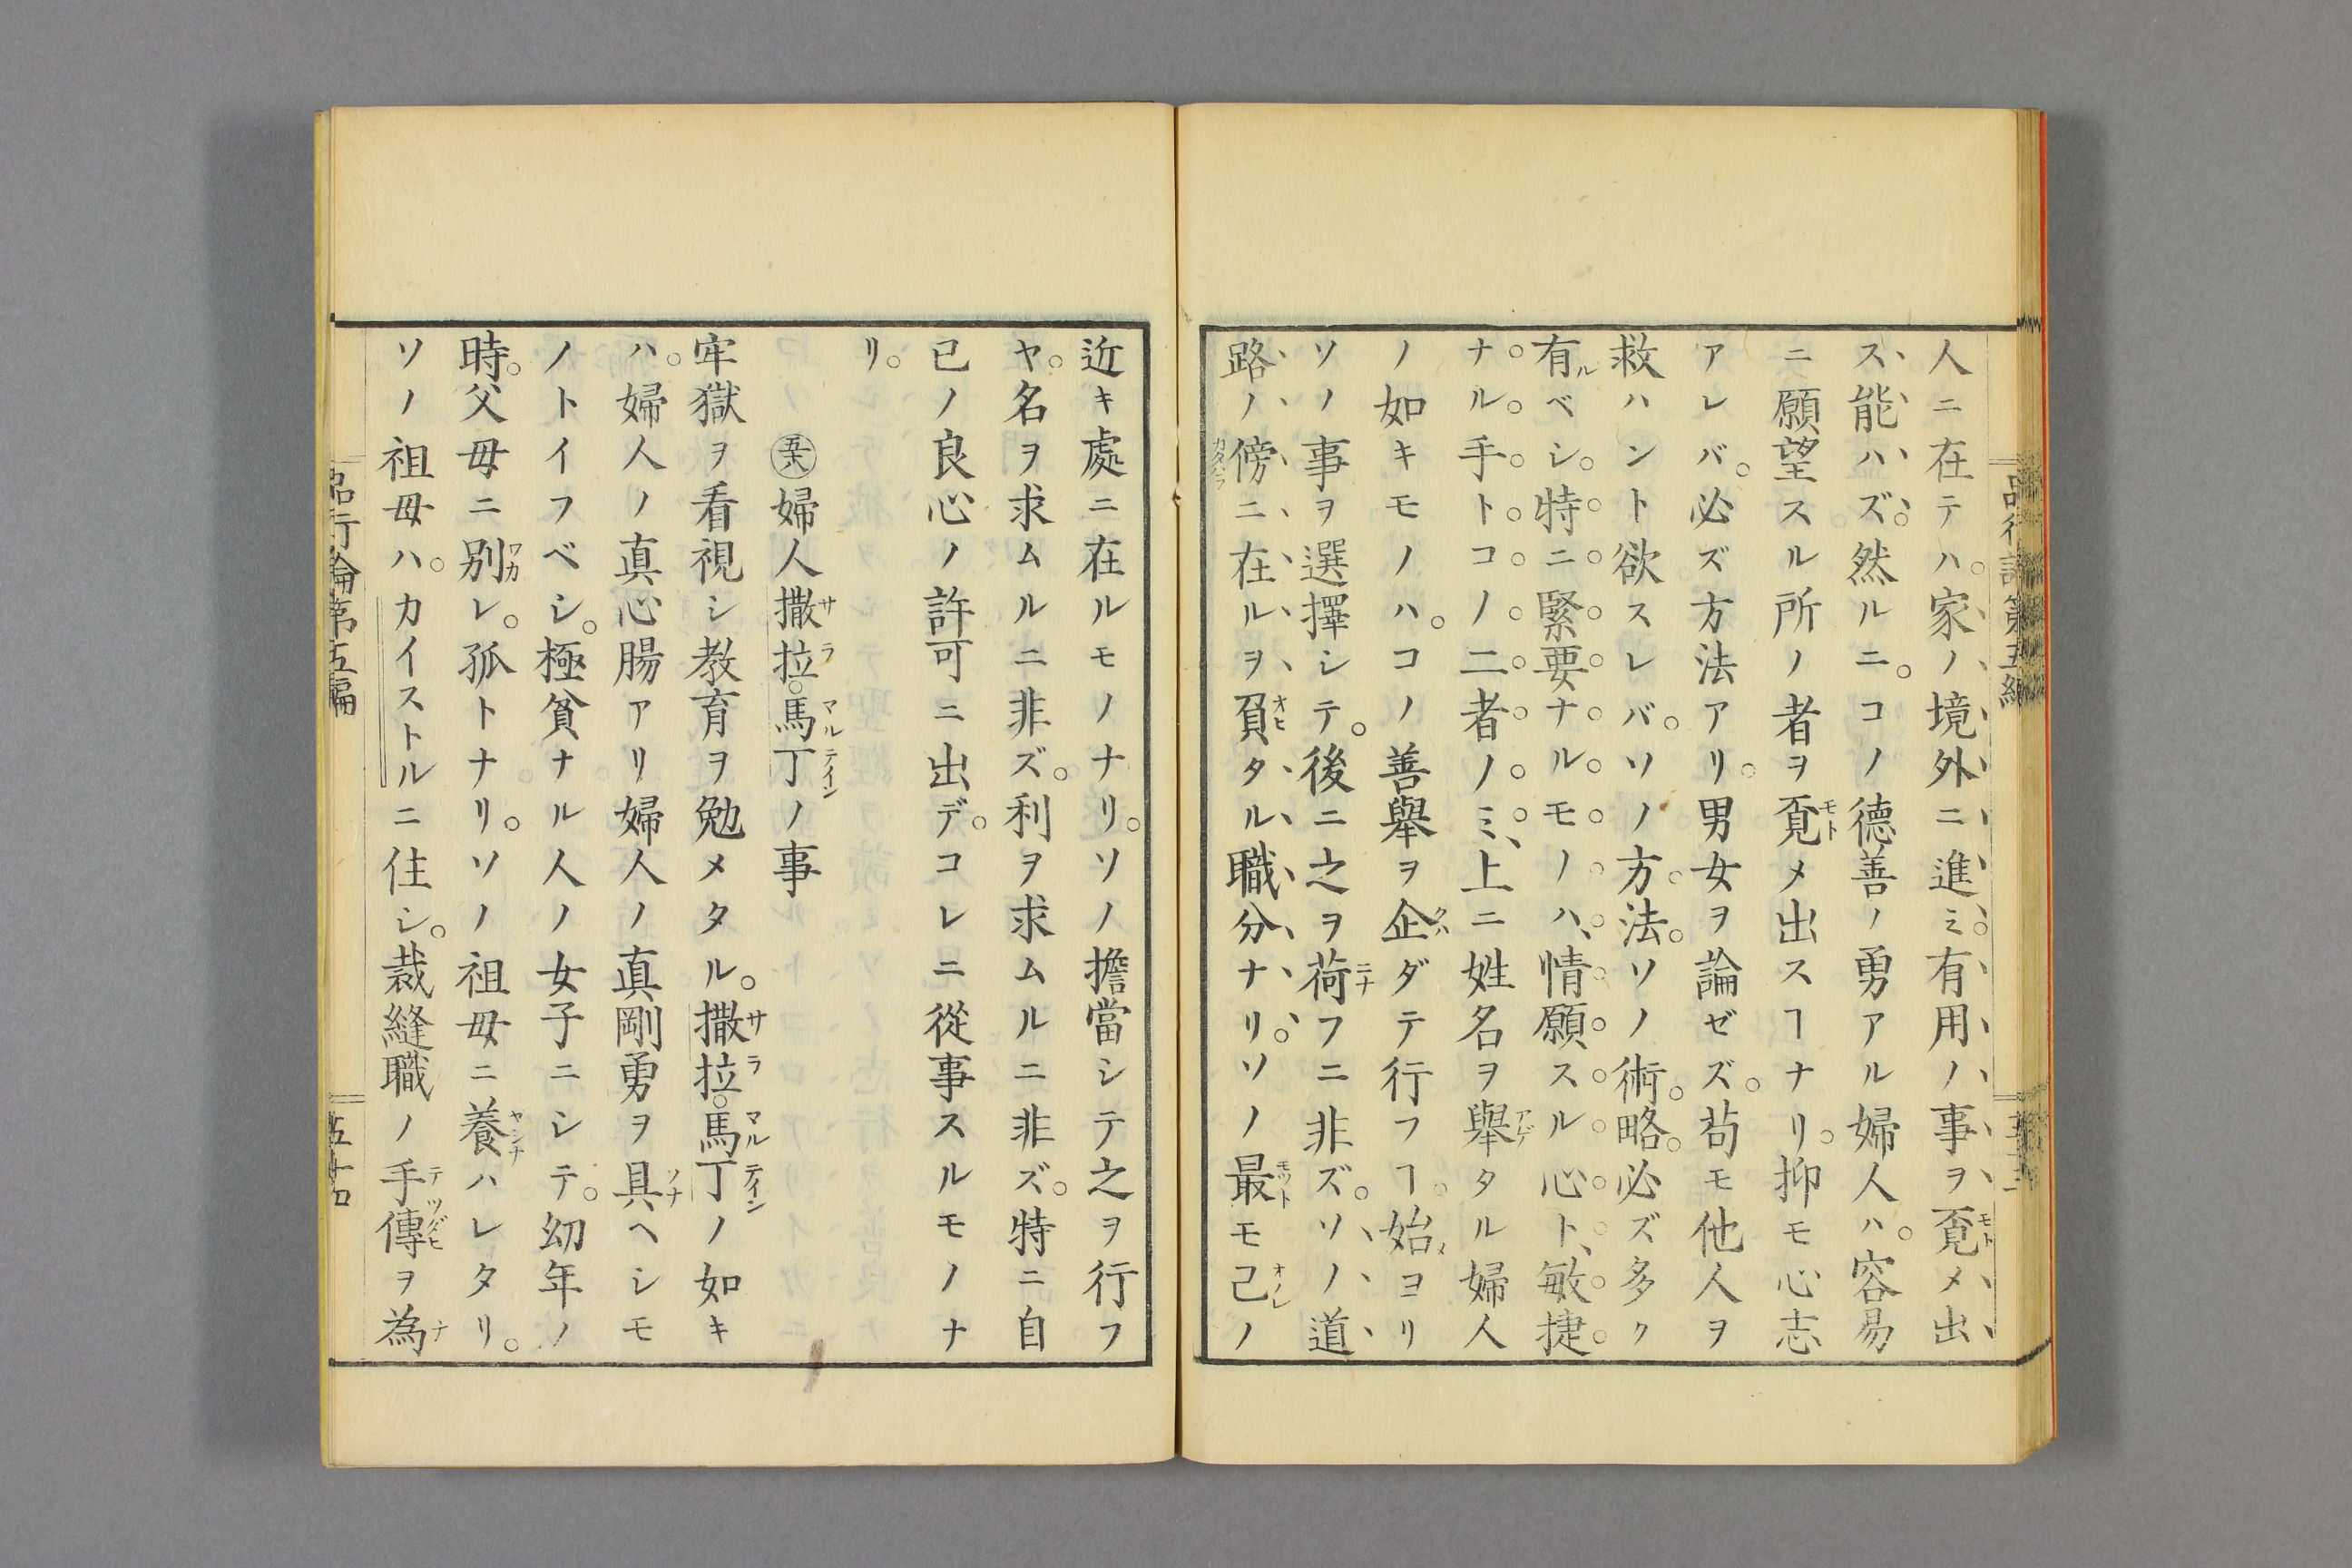 人ニ在テハ。家ノ境外ニ進ミ。有用ノ事ヲ覔メ出
ス能ハズ。然ルニ。コノ德善ノ勇アル婦人ハ。容易
ニ願望スル所ノ者ヲ覔メ出スヿナリ。抑モ心志
アレバ。必ズ方法アリ。男女ヲ論ゼズ。苟モ他人ヲ
救ハント欲スレバ。ソノ方法。ソノ術略。必ズ多ク
有ベシ。特ニ緊要ナルモノハ、情願スル心ト、敏捷
ナル手トコノ二者ノミ、上ニ姓名ヲ舉タル婦人
ノ如キモノハ。コノ善舉ヲ企ダテ行フヿ。始ヨリ
ソノ事ヲ選擇シテ。後ニ之ヲ荷フニ非ズ。ソノ道
路ノ傍ニ在ルヲ負タル職分ナリ。ソノ最モ己ノ
近キ處ニ在ルモノナリ。ソノ擔當シテ之ヲ行フ
ヤ。名ヲ求ムルニ非ズ。利ヲ求ムルニ非ズ。特ニ自
己ノ良心ノ許可ニ出デ。コレニ從事スルモノナ
リ。
婦人撒拉。馬丁ノ事
牢獄ヲ看視シ教育ヲ勉メタル。撒拉。馬丁ノ如キ
ハ。婦人ノ真心腸アリ婦人ノ真剛勇ヲ具ヘシモ
ノトイフベシ。極貧ナル人ノ女子ニシテ。幼年ノ
時。父母ニ別レ。孤トナリ。ソノ祖母ニ養ハレタリ。
ソノ祖母ハ。カイストルニ住シ。裁縫職ノ手傳ヲ為
品行論第五編